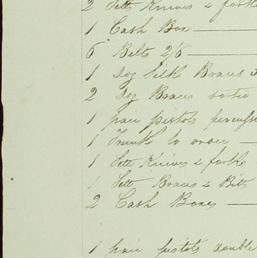 2 Sett Knives & forks
1 Cash Box
6 Bilts 2/6
1 Doz Silk Braces
2 Doz Braces sorted
1 pair pistols percuss
1 Trunk to order
1 Sett Knives & forks
1 Sett Braces & Bits
2 Cash Boxes
1 pair pistols double